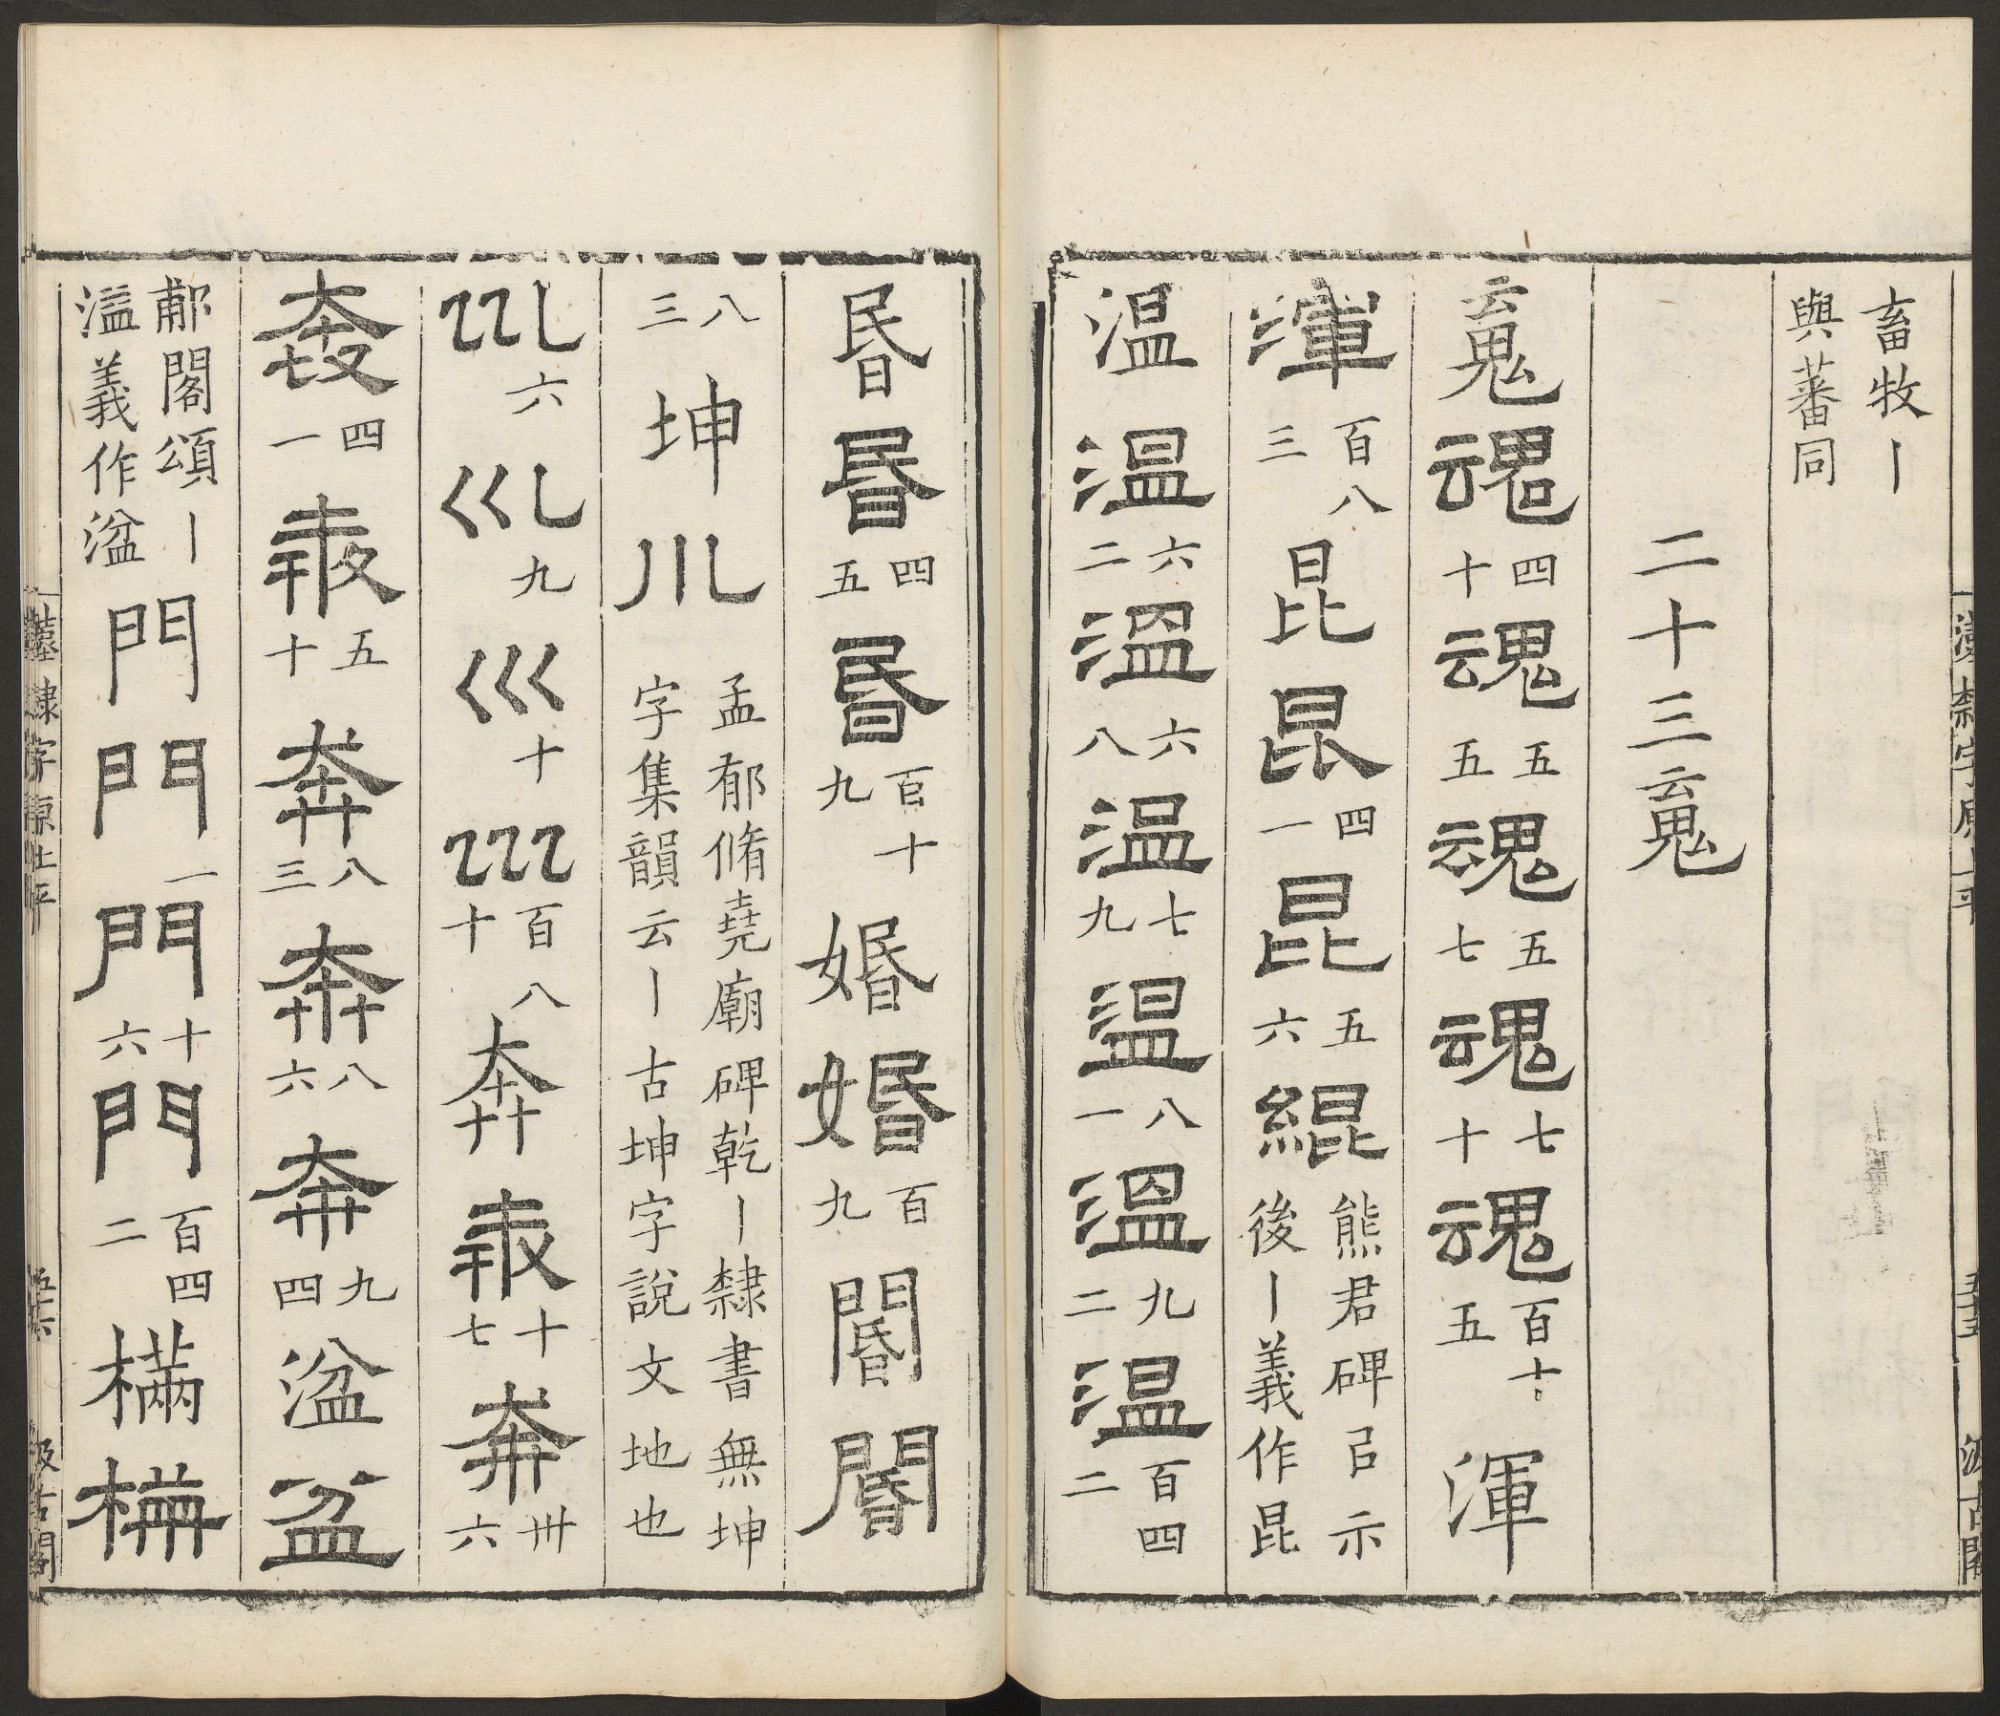 畜牧丨
與蕃同
二十三䰟
䰟魂四十魂五五魂五七魂七十魂百十五渾
渾百八三昆昆四一昆五六緄熊君碑㠯示後丨義作昆
温温六二溫六八温七九温八一溫九二温百四二
昬昬四五昬百十九婚婚百九閽閽
八三坤川孟郁脩堯廟碑乾丨隸書無坤字集韻云丨古坤字說文地也
六九十百八十奔十七奔卅六
四一五十奔八三奔八六奔九四湓盆
郙閣頌丨溢義作湓門門一門十六門百四二樠樠
漢隸字原上平
五十五
汲古閣
漢隸字原上平
五十六
汲古閣